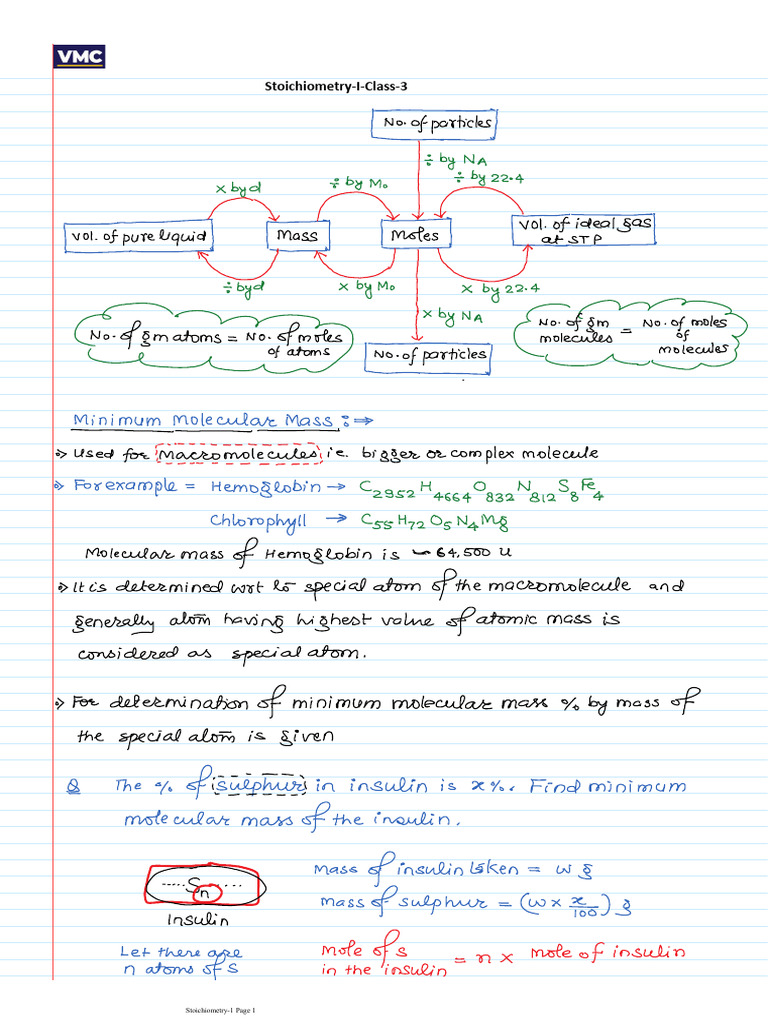 VMC
Stoichiometry-I-Class-3
No. of particles
÷ by NA
÷ by M₀
÷ by 22.4
x by d
Vol. of pure liquid
Mass
Moles
Vol. of ideal gas
at STP
÷ by d
x by M₀
x by 22.4
x by NA
No. of gm atoms = No. of moles
of atoms
No. of particles
No. of gm
molecules = No. of moles
of
molecules
Minimum Molecular Mass :⇒
Used for Macromolecules i.e. bigger or complex molecule
For example = Hemoglobin → C₂₉₅₂H₄₆₆₄O₈₃₂N₈₁₂S₈Fe₄
Chlorophyll → C₅₅H₇₂O₅N₄Mg
Molecular mass of Hemoglobin is ~ 64,500 u
It is determined wrt to special atom of the macromolecule and
generally atom having highest value of atomic mass is
considered as special atom.
For determination of minimum molecular mass % by mass of
the special atom is given
Q The % of sulphur in insulin is x%. Find minimum
molecular mass of the insulin.
.....Sₙ...
Insulin
Mass of insulin taken = w g
mass of sulphur = (w x x/100) g
Let there are
n atoms of S
Mole of S
in the insulin = n x mole of insulin
Stoichiometry-1 Page 1